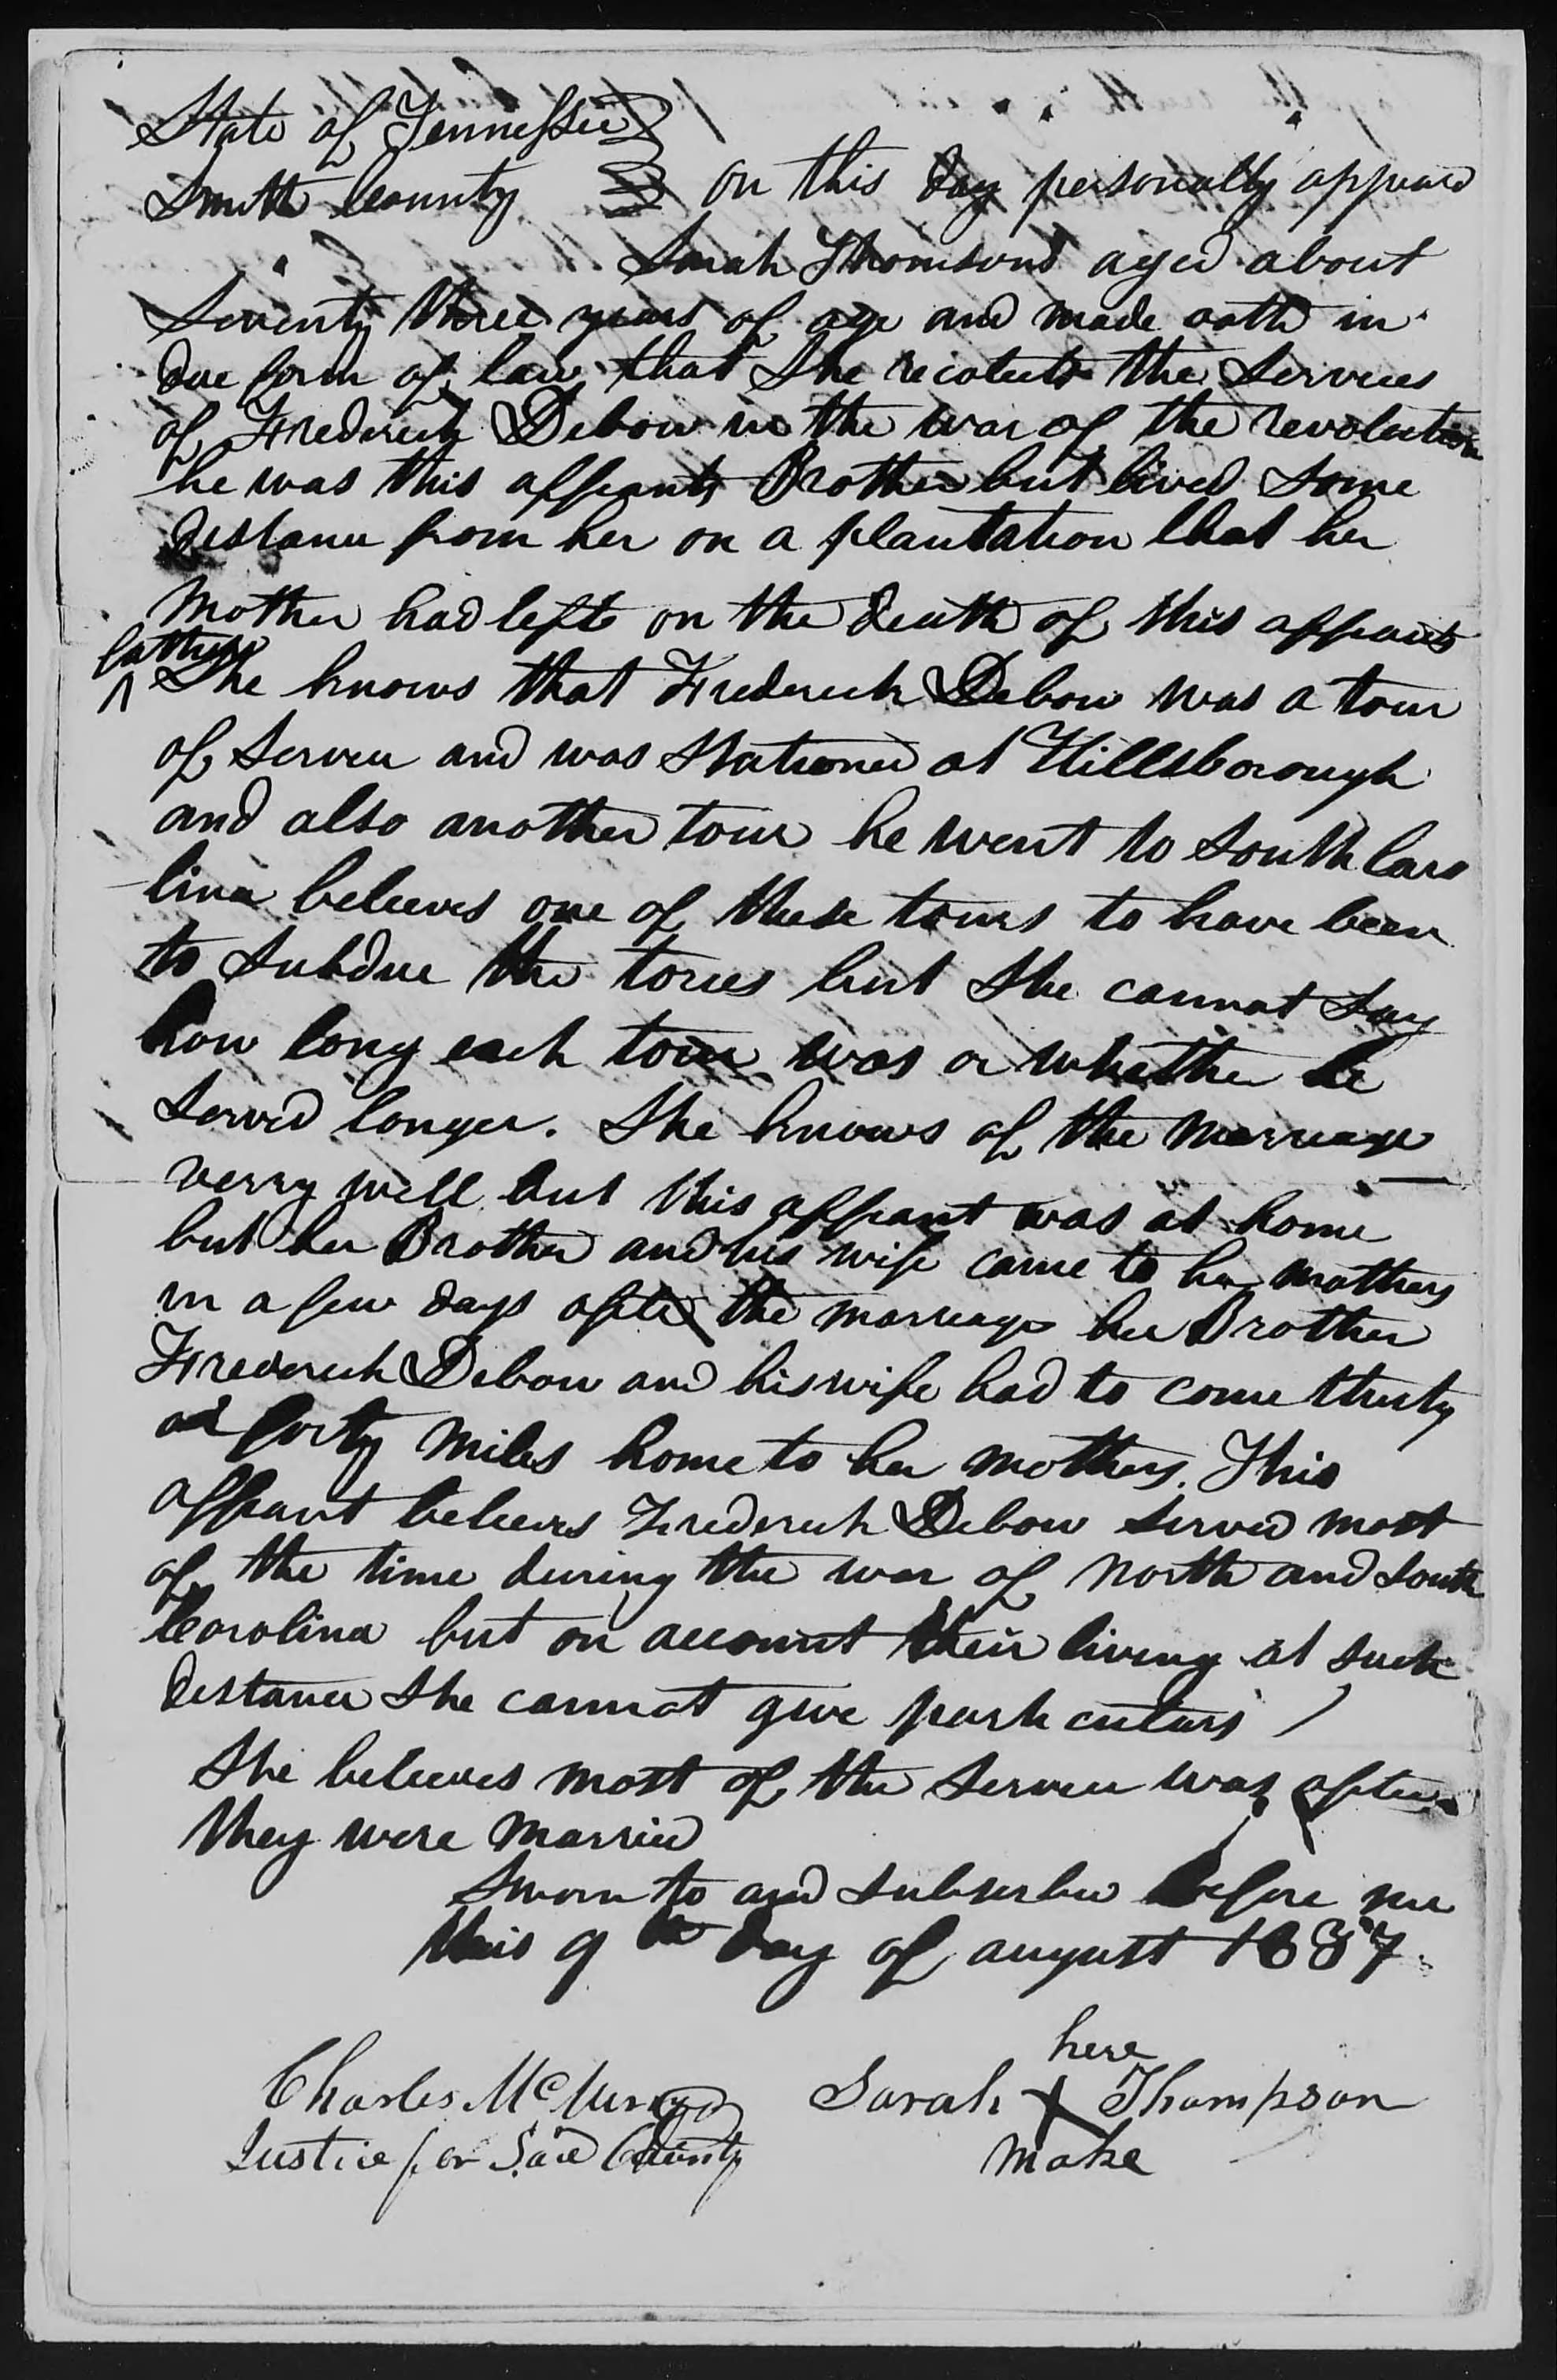 State of Tennessee
Smith County on this day personally appeard
Sarah Thomsond aged about
Seventy three years of age and made oath in
due form of law that She recolects the Services
of Frederick Debow in the war of the revolution
he was this affiants Brother but lived Some
distance from her on a plantation that her
Mother had left on the death of this affiants
father
^ She knows that Frederick Debow was a tour
of Service and was Stationed at Hillsborough
and also another tour he went to South Caro
lina believes one of these tours to have been
to Subdue the tories but She cannot Say
how long each tour was or whether he
Served longer. She knows of the Marriage
verry well but this affiant was at home
but her Brother and his wife came to her Mothers
in a few days after the marriage her Brother
Frederick Debow and his wife had to come thirty
or forty Miles home to her Mothers. This
affiant believes Frederick Debow Served most
of the time during the war of North and South
Carolina but on account their living at Such
distance She cannot give particulars
She believes most of the Service was after
they were Married
Sworn to and Subscribed before me
this 9th day of august 1837
here
Charles Sarah X Thompson
Justice for Said County make